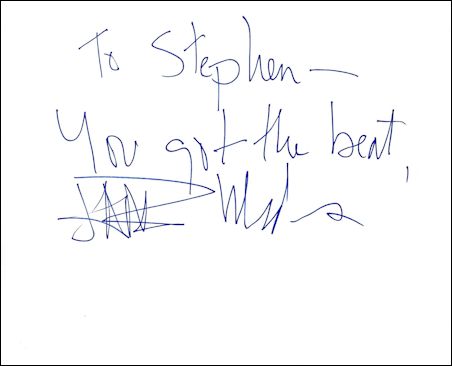 To Stephen—
You got the beat,